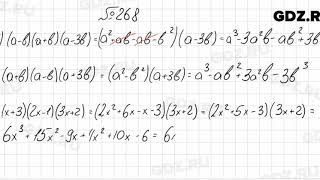 №268
GDZ.R
) (a-b)(a+b)(a-3b)=(a²+ab-ab-b²)(a-3b)=a³-3a²b-ab²+3b
(a+b)(a-b)(a+3b)=(a²-b²)(a+3b)=a³-ab²+3a²b-3b³
(x+3)(2x-1)(3x+2)=(2x²+6x-x-3)(3x+2)=(2x²+5x-3)(3x+2)=
6x³+15x²-9x+4x²+10x-6=6x